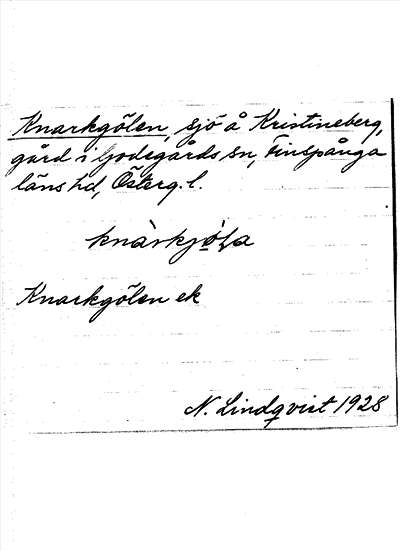 Knarkgölen, sjö å Kristineberg,
gård i Godegårds sn, Finspånga
läns hd, Österg. l.
knàrkjö̀ɫa
Knarkgölen ek
N. Lindqvist 1928